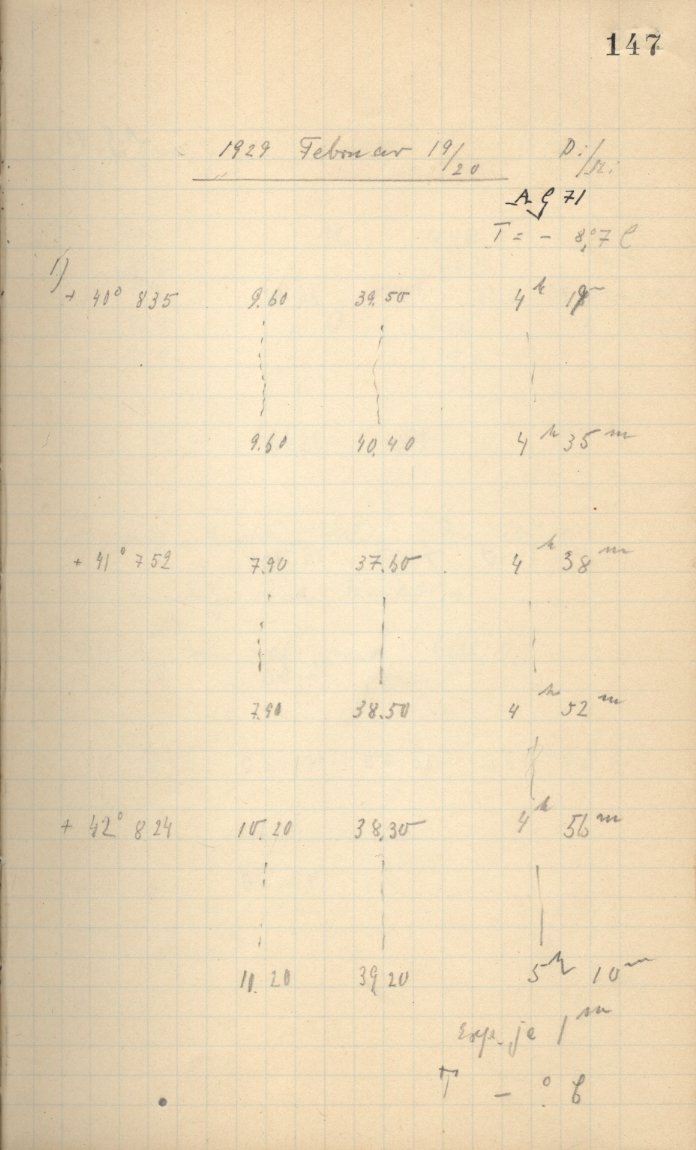 147
1929 Februar 19/20 Di/Mi.
AG 71
T = - 8,°7 C
1)
+ 40° 835 9.60 39.50 4 h
9.60 40.40 4 h 35 m
+ 41° 752 7.90 37.60 4 h 38 m
7.90 38.50 4 h 52 m
+ 42° 824 10.20 38.30 4 h 56 m
39.20 5 h 10 m
Exp. je 1 m
T - ° C